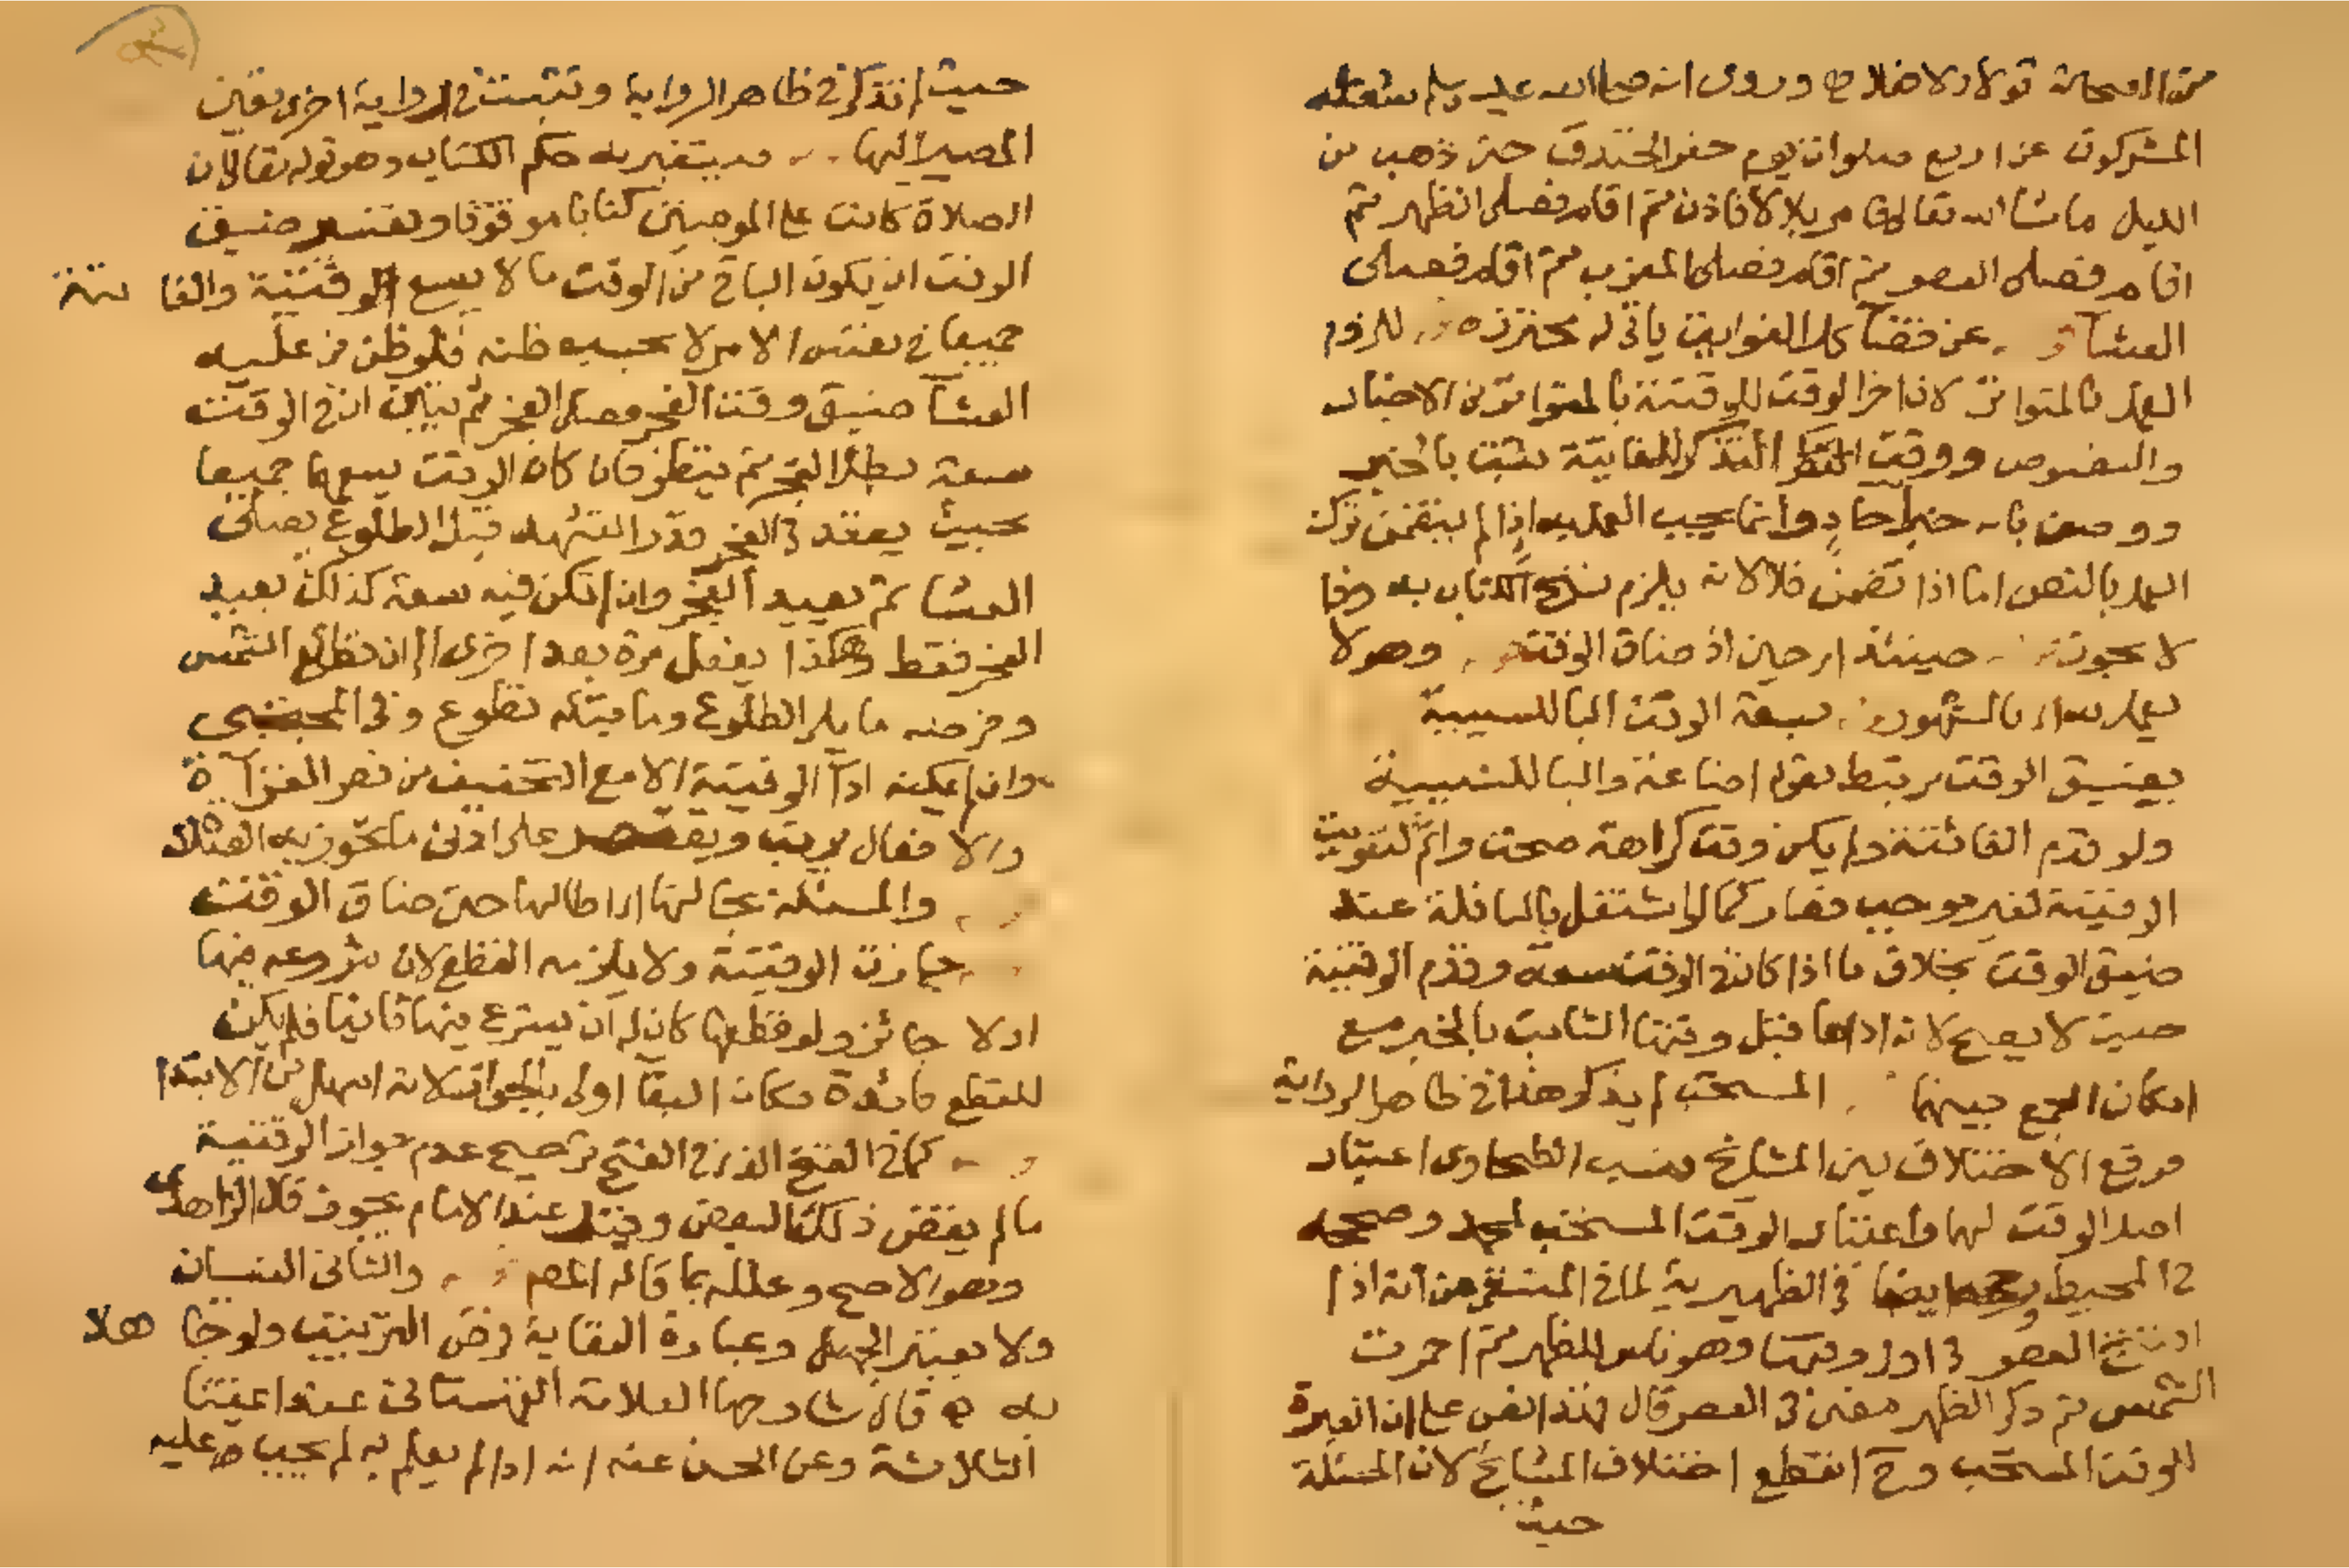 من الصحابة قولا ولا خلافا وروى انه صلى الله عليه وسلم شغله
المشركون عن اربع صلوات يوم حفر الخندق حتى ذهب من
الليل ما شا الله تعالى فامر بلالا فاذن ثم اقام فصلى الظهر ثم
اقام فصلى العصر ثم اقام فصلى المغرب ثم اقام فصلى
العشآ عن قضآ كل الفوايت ياتى له محترزه للزوم
العمل بالمتواتر لان اخر الوقت للوقتية بالمتواتر من الاخبار
والنصوص ووقت التذكر للفايتة يثبت بالخبر
ووصف بانه خبر احاد وانما يجب العمل به اذا لم يتضمن ترك
العمل بالنص اما اذا تضمن فلا لانه يلزم نسخ الكتاب به وذا
لا يجوز حينئذ اى حين اذ ضاق الوقت وهو لا
يعمل به اى بالمشهور بسعة الوقت البا للسببية
بضيق الوقت مرتبط بقوله اضاعة والبا للسببية
ولو قدم الفائتة ولم يكن وقت كراهة صحت واثم لتفويت
الوقتية لغير موجب فصار كما لو اشتغل بالنافلة عند
ضيق الوقت بخلاف ما اذا كان فى الوقت سعة وقدم الوقتية
حيث لا يصح لانه اداها قبل وقتها الثابت بالخبر مع
امكان الجمع بينهما المستحب لم يذكر هذا فى ظاهر الرواية
فوقع الاختلاف بين المشايخ فنسب الطحاوى اعتبار
اصل الوقت لهما واعتبار الوقت المستحب لمحمد وصححه
فى المحيط ايضا فى الظهيرية لما فى المنتقى من انه اذا
افتتح العصر فى اول وقتها وهو ناس للظهر ثم احمرت
الشمس ثم ذكر الظهر مضى فى العصر قال فهذا نص على ان العبرة
الوقت المستحب وح انقطع اختلاف المشايخ لان المسئلة
حيث
حيث لم تذكر فى ظاهر الرواية وتثبت فى رواية اخرى تعين
المصير اليها فيتغير به حكم الكتاب وهو قوله تعالى ان
الصلاة كانت على المومنين كتابا موقوتا وتفسير ضيق
الوقت ان يكون الباقى من الوقت ما لا يسع الوقتية والفا ئتة
جميعا فى نفس الامر لا بحسب ظنه فلو ظن من عليه
العشآ ضيق وقت الفجر فصلى الفجر ثم تبين ان فى الوقت
سعة بطل الفجر ثم ينظر فان كان الوقت يسعهما جميعا
بحيث يقعد فى الفجر قدر التشهد قبل الطلوع يصلى
العشا ثم يعيد الفجر وان لم تكن فيه سعة كذلك يعيد
الفجر فقط وهكذا يفعل مرة بعد اخرى الى ان تطلع الشمس
وفرضه ما يلى الطلوع وما قبله تطوع وفى المجتبى
وان لم يمكنه ادآ الوقتية الا مع التخفيف من قصر القرآة
والافعال يرتب ويقتصر على ادنى ما تجوز به الصلاة
والمسئلة بحالها اى اطالها حتى ضاق الوقت
جازت الوقتية ولا يلزمه القطع لان شروعه فيها
اولا جائز ولو قطعها كان له ان يشرع فيها ثانيا فلم يكن
للقطع فائدة فكان البقآ اولى بالجواز لانه اسهل من الابتدا
كما فى الفتح الذى فى الفتح ترجيح عدم جواز الوقتية
ما لم يقض ذلك البعض وقيل عند الامام يجوز قال الزاهدى
وهو الاصح وعلله بما قاله المص والثانى النسيان
ولا يعتبر الجهل وعبارة النقاية فرض الترتيب ولو جا هلا
به قال شارحها العلامة القهستانى عند ائمتنا
الثلاثة وعن الحسن عنه انه اذا لم يعلم به لم يجب عليه